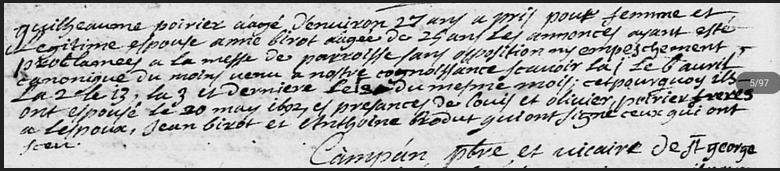 guilheaume poirier aagé denviron 27 ans a pris pour femme et
Legitime espouse anne birot aagee de 25 ans les annonces ayant esté
proclamees a la messe de parroisse sans opposition ny empeschement
canonique du moins venu a nostre cognoissance scavoir la j le 6 avril
La 2 le 13, la 3 et derniere le du mesme mois; cet pourquoy ils
ont espousé le 20 may es presances de Louis et olivier poirier freres
a lespoux, Jean birot et Anthoine Brodut qui ont signé ceux qui ont
sceu.
Campún, ptre et vicaire de st george
5/97